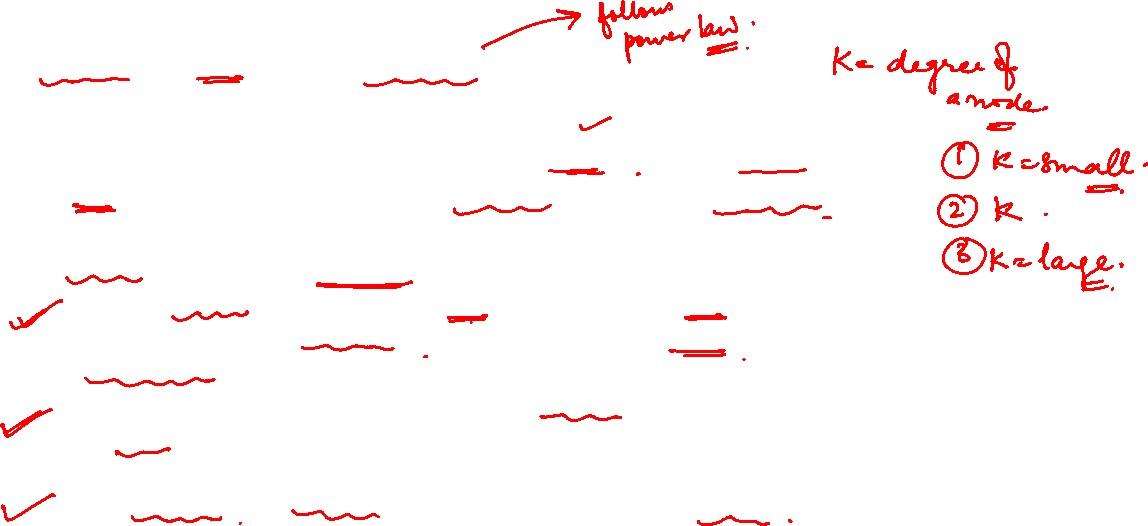 follows
power law.
K = degree of
a node.
① K = small.
② K.
③ K = large.